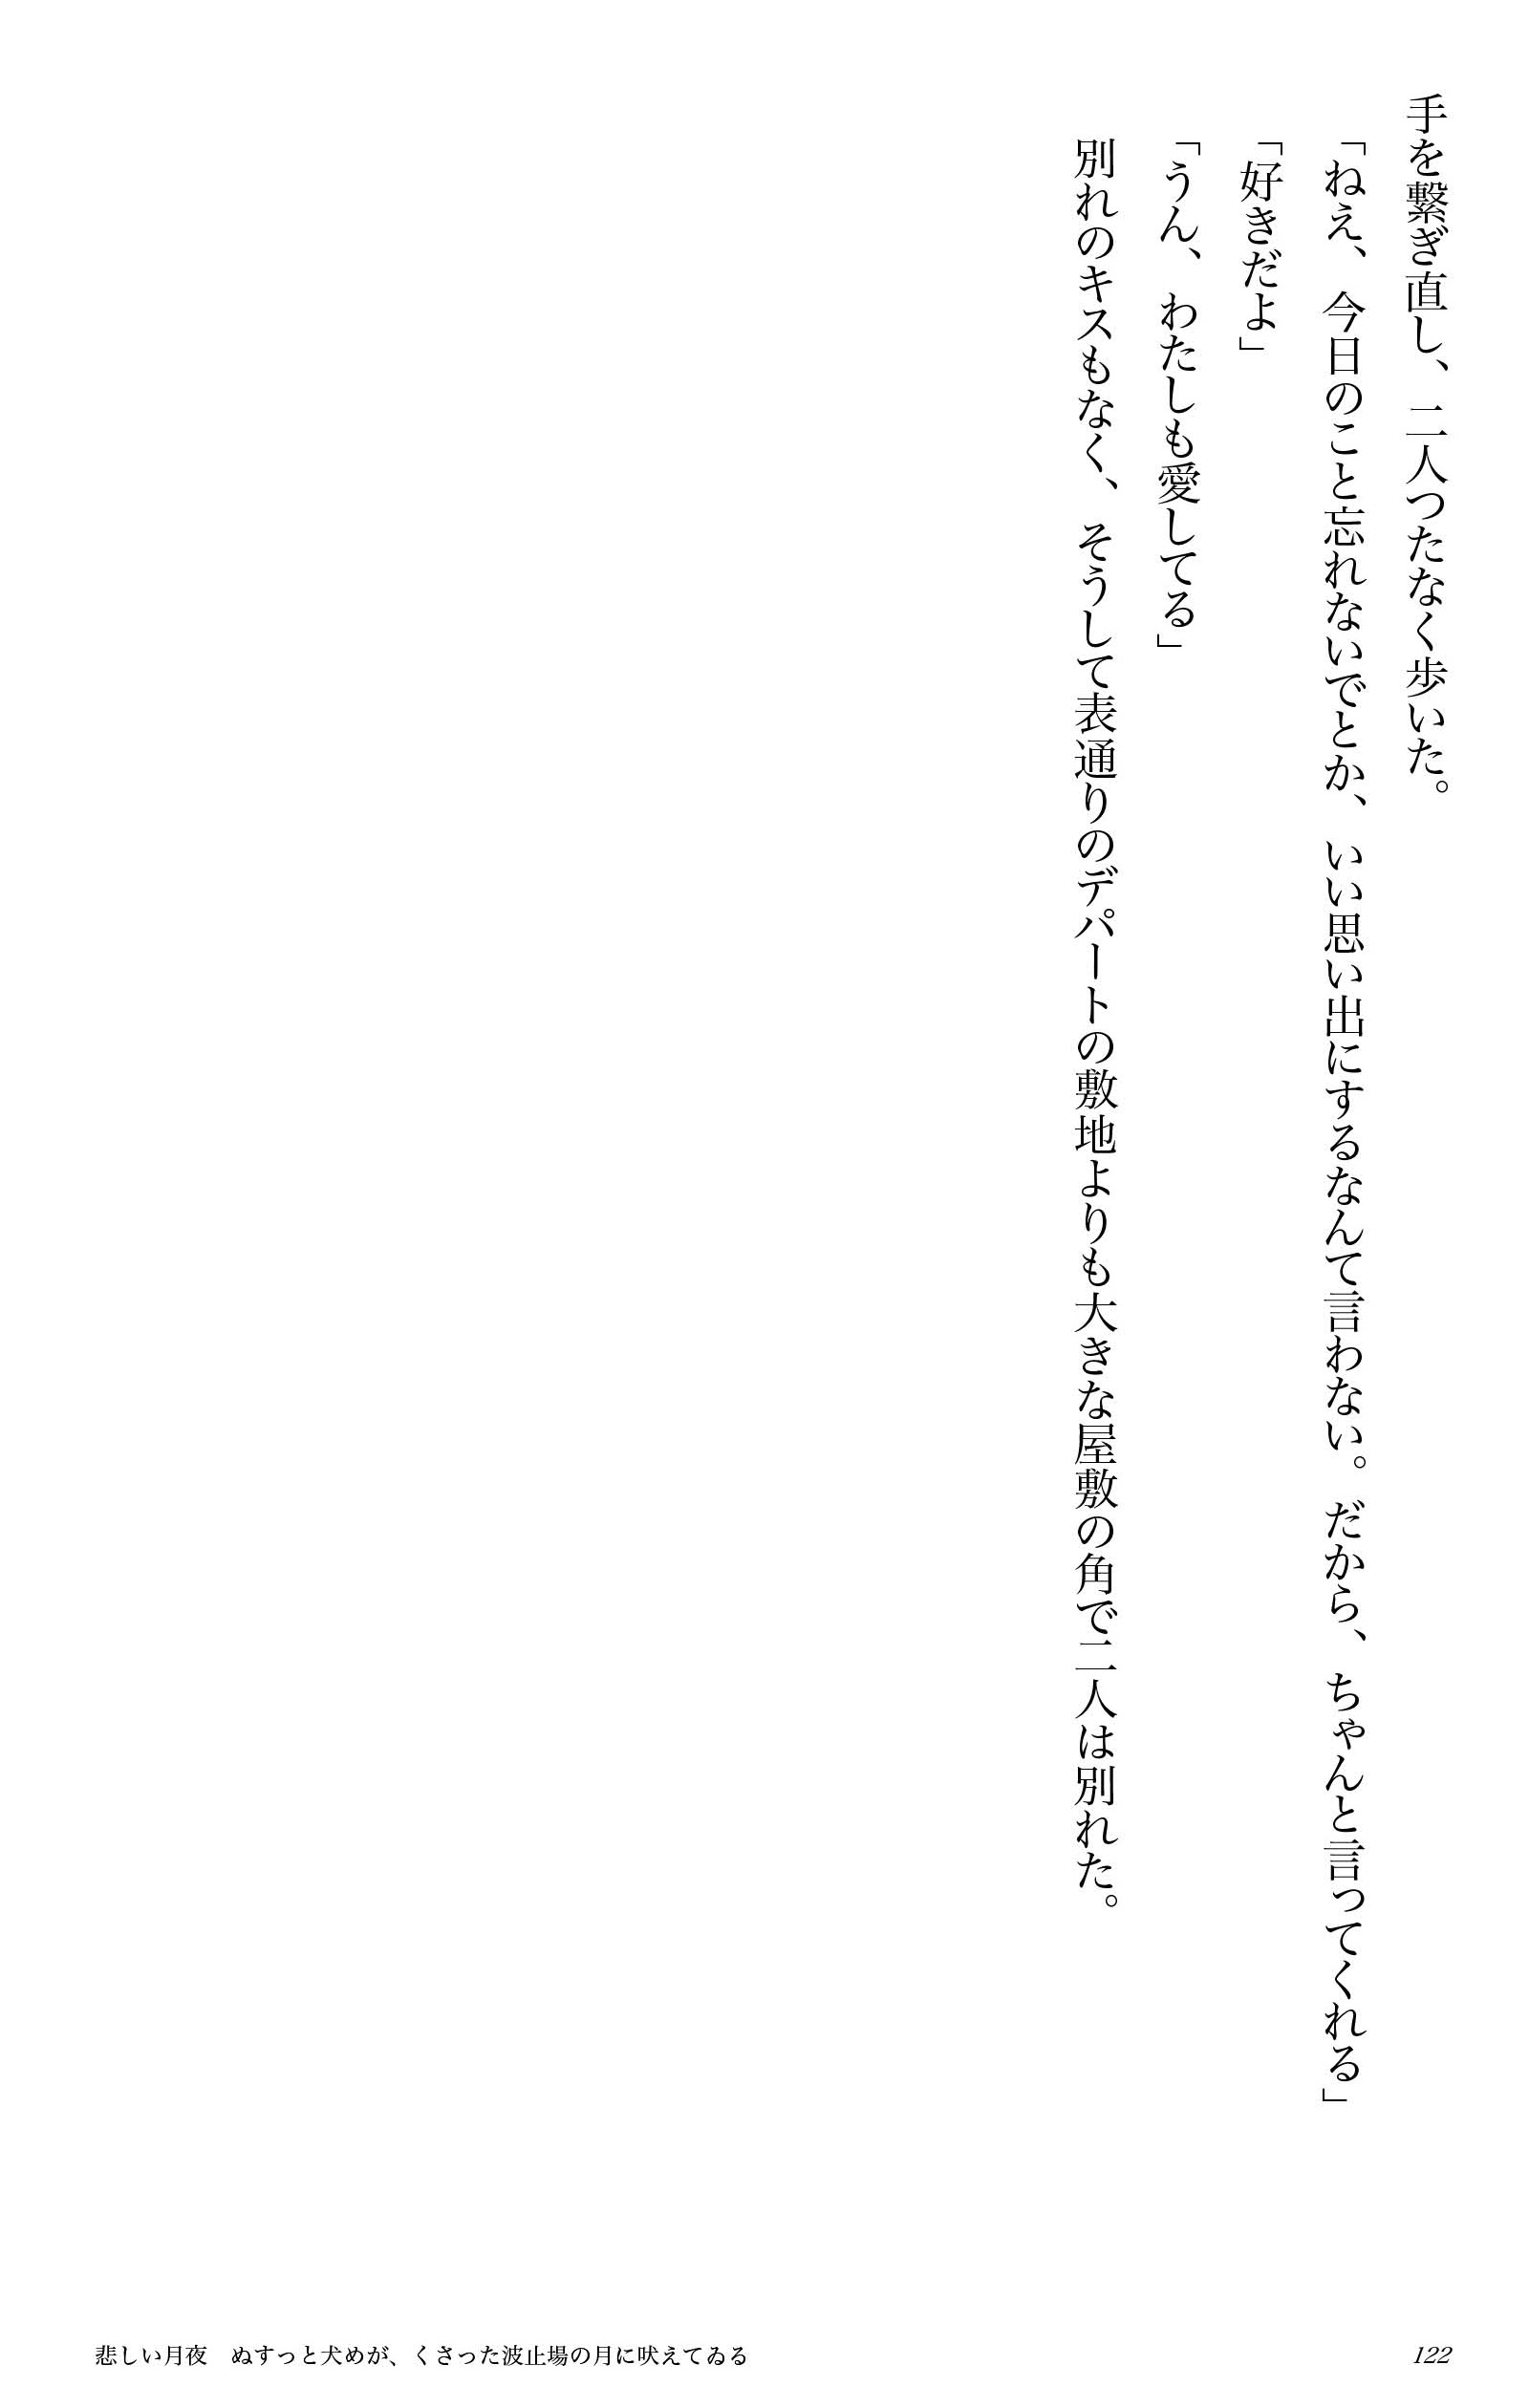 手を繋ぎ直し、二人つたなく歩いた。
「ねえ、今日のこと忘れないでとか、いい思い出にするなんて言わない。だから、ちゃんと言ってくれる」
「好きだよ」
「うん、わたしも愛してる」
別れのキスもなく、そうして表通りのデパートの敷地よりも大きな屋敷の角で二人は別れた。
悲しい月夜　ぬすっと犬めが、くさった波止場の月に吠えてゐる
122